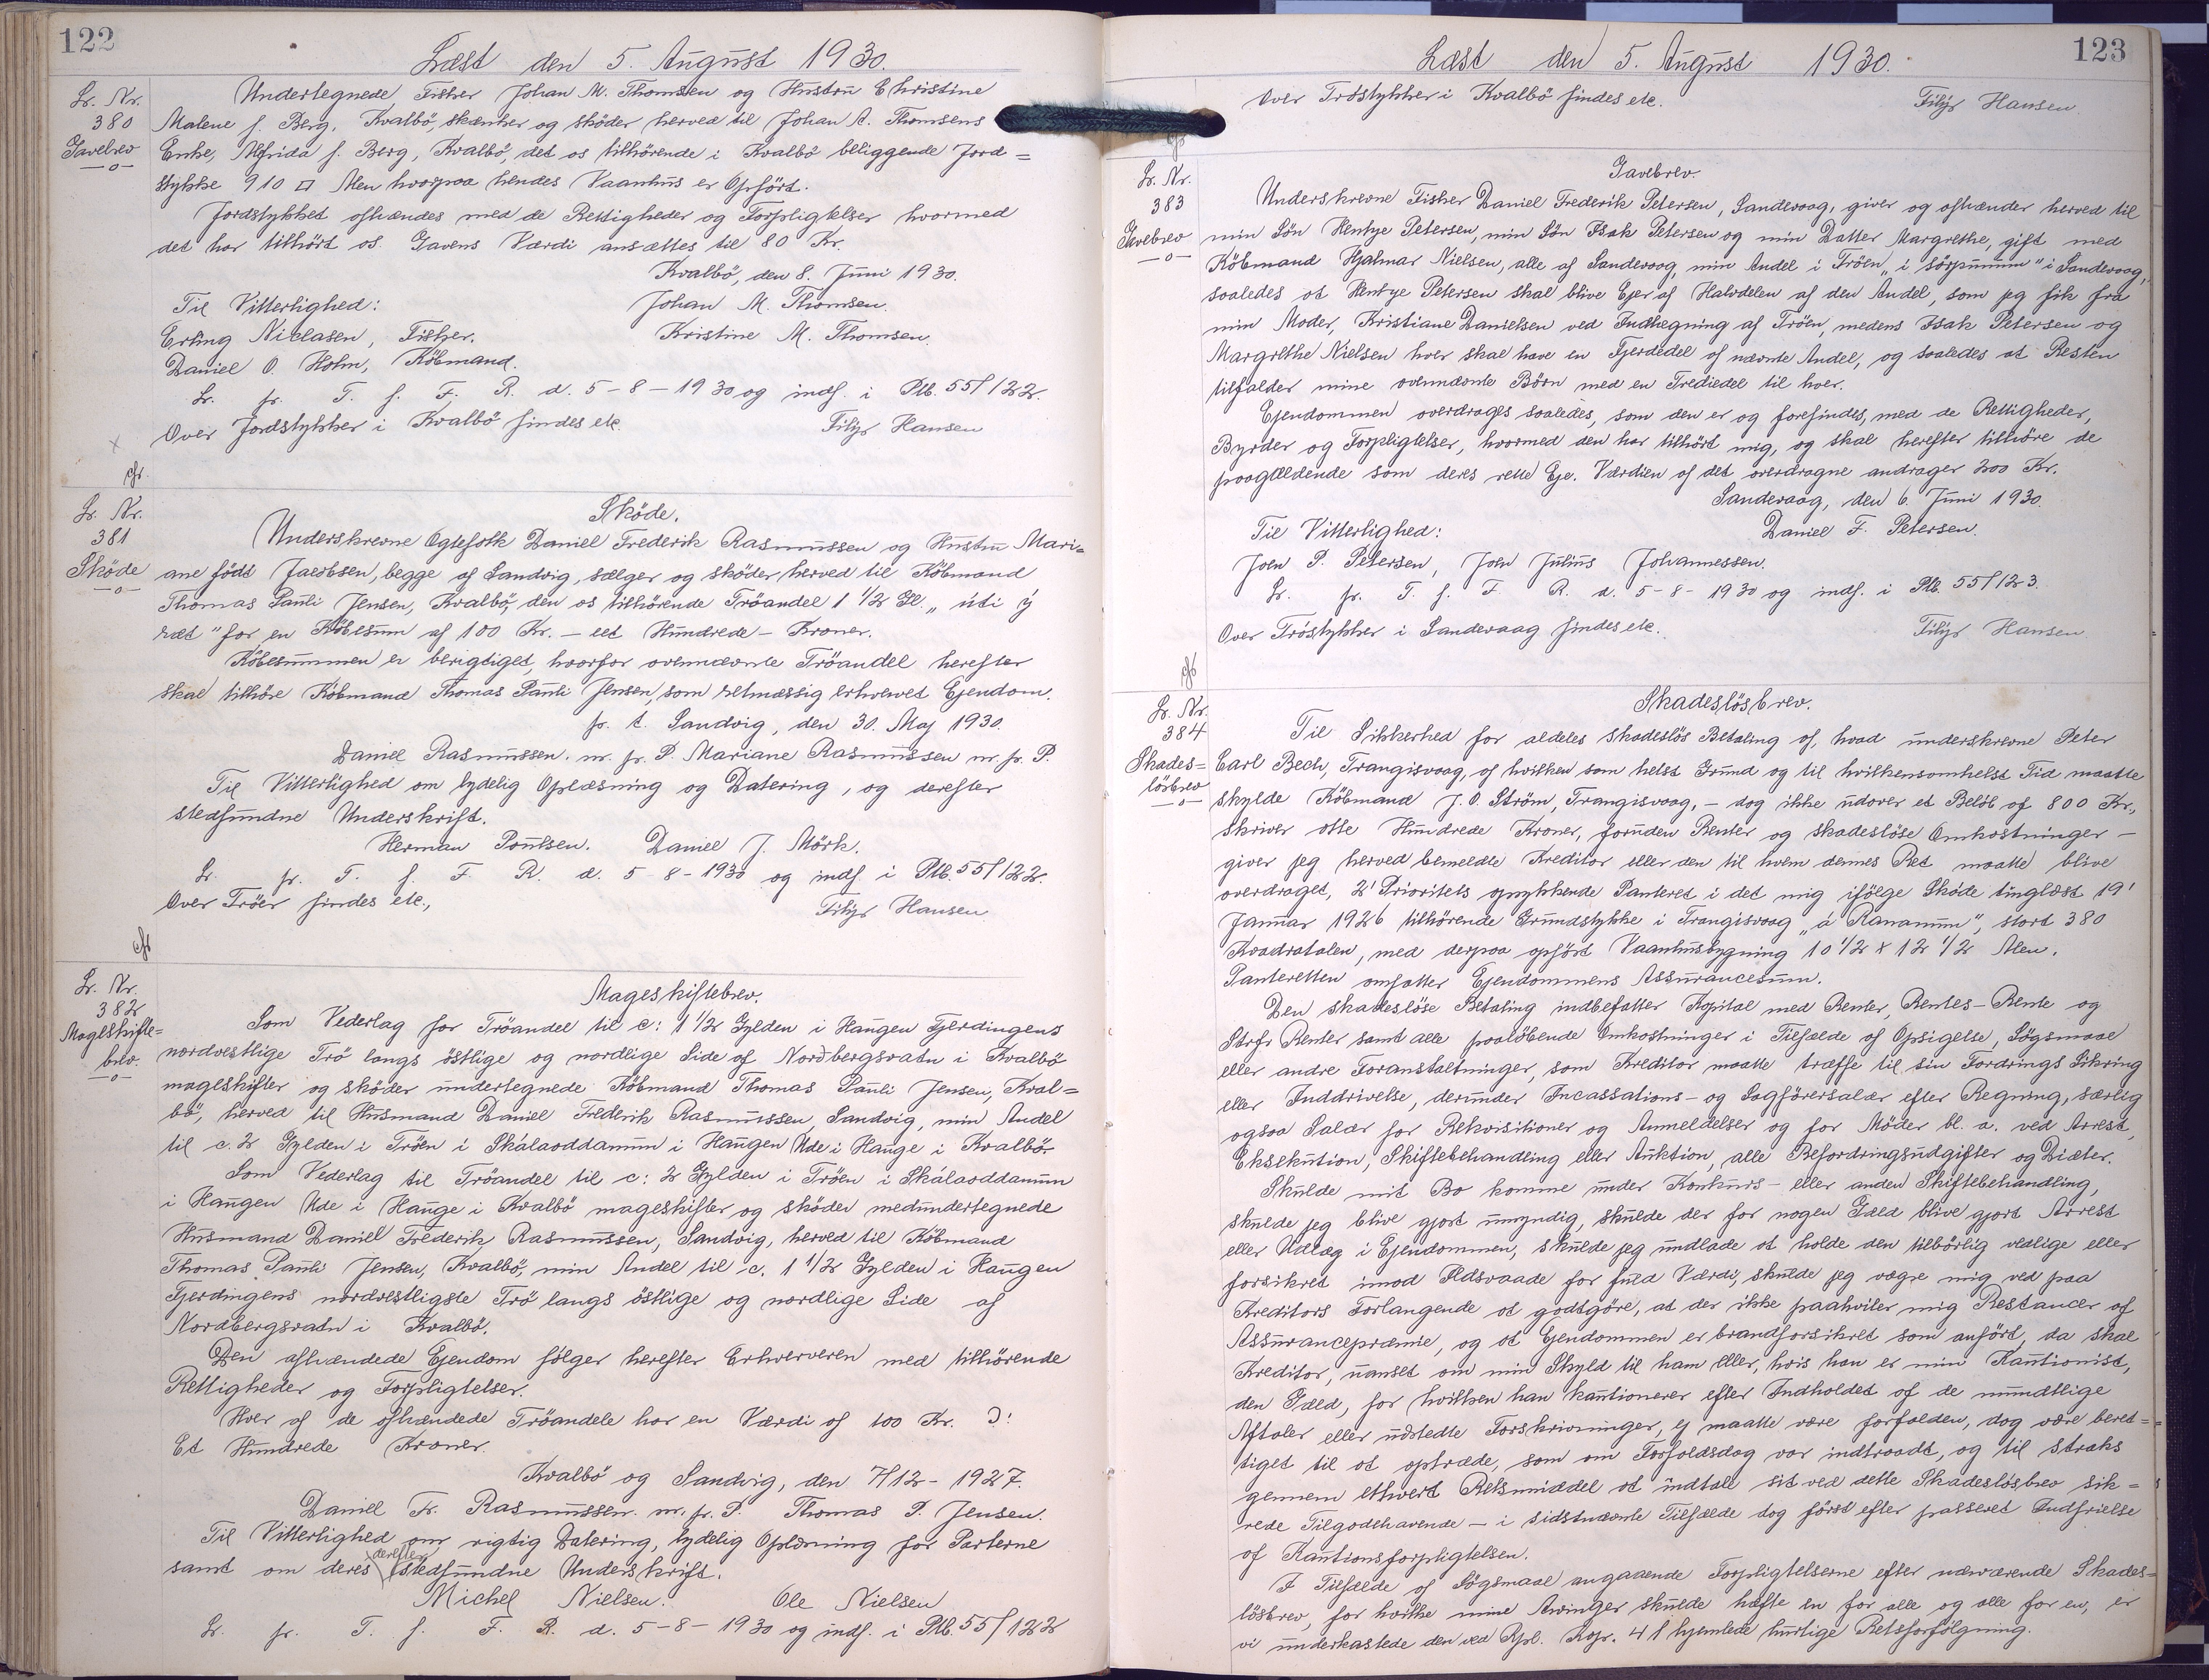 122
Læst den 5. August 1930.
Lr. Nr.
380
Gavebrev
Undertegnede Fisker Johan M. Thomsen og Hustru Christine
Malene f. Berg, Kvalbö, skænker og sköder herved til Johan A. Thomsens
Enke, Alfrida f. Berg, Kvalbö, det os tilhörende i Kvalbö beliggende Jord=
stykke 910 □ Alen hvorpaa hendes Vaanhus er Opfört.
Jordstykket afhændes med de Rettigheder og Forpligtelser hvormed
det har tilhört os. Gavens Værdi ansættes til 80 Kr.
Kvalbö, den 8. Juni 1930.
Til Vitterlighed: Johan M. Thomsen.
Erling Niclasen, Fisker. Kristine M. Thomsen.
Daniel O. Holm, Köbmand.
Lr. fr. T. f. F. R. d. 5-8-1930 og indf. i Ptb. 55/122.
Over Jordstykker i Kvalbö findes etc. Filip Hansen
cfr.
Lr. Nr.
381
Sköde
Sköde.
Underskrevne Ægtefolk Daniel Frederik Rasmussen og Hustru Mari=
ane födt Jacobsen, begge af Sandvig, sælger og sköder herved til Köbmand
Thomas Pauli Jensen, Kvalbö, den os tilhörende Tröandel 1 1/2 Gl. „úti ý
ræt" for en Köbesum af 100 Kr. - eet Hundrede - Kroner.
Köbesummen er berigtiget, hvorfor ovennævnte Tröandel herefter
skal tilhöre Köbmand Thomas Pauli Jensen, som retmæssig erhvervet Ejendom.
p. t. Sandvig, den 30. Maj 1930.
Daniel Rasmussen. m. f. P. Mariane Rasmussen m. f. P.
Til Vitterlighed om lydelig Oplæsning og Datering, og derefter
stedfundne Underskrift.
Herman Poulsen. Daniel J. Mörk.
Lr. fr. T. f. F. R. d. 5-8-1930 og indf. i Ptb. 55/122.
Over Tröer findes etc., Filip Hansen
cfr
Lr. Nr.
382
Mageskifte=
brev.
Mageskiftebrev.
Som Vederlag for Tröandel til c: 1 1/2 Gylden i Haugen Fjerdingens
nordvestlige Trö langs östlige og nordlige Side af Norðbergsvatn i Kvalbö
mageskifter og sköder undertegnede Köbmand Thomas Pauli Jensen, Kval=
bö, herved til Husmand Daniel Frederik Rasmussen, Sandvig, min Andel
til c. 2 Gylden i Tröen i Skálaoddanum i Haugen Ude i Hauge i Kvalbö.
Som Vederlag til Tröandel til c: 2 Gylden i Tröen i Skálaoddanum
i Haugen Ude i Hauge i Kvalbö mageskifter og sköder medundertegnede
Husmand Daniel Frederik Rasmussen, Sandvig, herved til Köbmand
Thomas Pauli Jensen, Kvalbö, min Andel til c. 1 1/2 Gylden i Haugen
Fjerdingens nordvestligste Trö langs östlige og nordlige Side af
Nordbergsvatn i Kvalbö.
Den afhændede Ejendom fölger herefter Erhververen med tilhörende
Rettigheder og Forpligtelser.
Hver af de afhændede Tröandele har en Værdi af 100 Kr. Ɔ:
Et Hundrede Kroner.
Kvalbö og Sandvig, den 7/12-1927.
Daniel Fr. Rasmussen. m. f. P. Thomas P. Jensen.
Til Vitterlighed om rigtig Datering, lydelig Oplæsning for Parterne
samt om deres derefter stedfundne Underskrift.
Michel Nielsen. Ole Nielsen
Lr. fr. T. f. F. R. d. 5-8-1930 og indf. i Ptb. 55/122
123
Læst den 5. August 1930.
Over Tröstykker i Kvalbö findes etc. Filip Hansen.
cfr
Lr. Nr.
383
Gavebrev
Gavebrev.
Underskrevne Fisker Daniel Frederik Petersen, Sandevaag, giver og afhænder herved til
min Sön Hentje Petersen, min Sön Isak Petersen og min Datter Margrethe, gift med
Köbmand Hjalmar Nielsen, alle af Sandevaag, min Andel i Tröen „i sörpunum" i Sandevaag,
saaledes at Hentje Petersen skal blive Ejer af Halvdelen af den Andel, som jeg fik fra
min Moder, Kristiane Danielsen ved Indhegning af Tröen, medens Isak Petersen og
Margrethe Nielsen hver skal have en Fjerdedel af nævnte Andel, og saaledes at Resten
tilfalder mine ovennævnte Börn med en Trediedel til hver.
Ejendommen overdrages saaledes, som den er og forefindes, med de Rettigheder,
Byrder og Forpligtelser, hvormed den har tilhört mig, og skal herefter tilhöre de
paagældende som deres rette Eje. Værdien af det overdragne andrager 200 Kr.
Sandevaag, den 6. Juni 1930.
Til Vitterlighed: Daniel F. Petersen.
Joen P. Petersen, Joen Julius Johannessen.
Lr. fr. T. f. F. R. d. 5-8-1930 og indf. i Ptb. 55/123.
Over Tröstykker i Sandevaag findes etc. Filip Hansen.
cfr
Lr. Nr.
384
Skades=
lösbrev
Skadeslösbrev.
Til Sikkerhed for aldeles skadeslös Betaling af, hvad underskrevne Peter
Carl Bech, Trangisvaag, af hvilken som helst Grund og til hvilkensomhelst Tid maatte
skylde Köbmand J. O. Ström, Trangisvaag, - dog ikke udover et Belöb af 800 Kr.,
skriver otte Hundrede Kroner, foruden Renter og skadeslöse Omkostninger -
giver jeg herved bemeldte Kreditor eller den til hvem dennes Ret maatte blive
overdraget, 2' Prioritets oprykkende Panteret i det mig ifölge Sköde tinglæst 19'
Januar 1926 tilhörende Grundstykke i Trangisvaag „á Rananum", stort 380
Kvadratalen, med derpaa opfört Vaanhusbygning 10 1/2 x 12 1/2 Alen.
Panteretten omfatter Ejendommens Assurancesum.
Den skadeslöse Betaling indbefatter Kapital med Renter, Rentes-Rente og
Strafs Renter samt alle paalöbende Omkostninger i Tilfælde af Opsigelse, Sögsmaal
eller andre Foranstaltninger, som Kreditor maatte træffe til sin Fordrings Sikring
eller Inddrivelse, derunder Incassations- og Sagförersalær efter Regning, særlig
ogsaa Salær for Rekvisitioner og Anmeldelser og for Möder bl. a. ved Arrest,
Eksekution, Skiftebehandling eller Auktion, alle Befordringsudgifter og Diæter.
Skulde mit Bo komme under Konkurs- eller anden Skiftebehandling,
skulde jeg blive gjort umyndig, skulde der for nogen Gæld blive gjort Arrest
eller Udlæg i Ejendommen, skulde jeg undlade at holde den tilbörlig vedlige eller
forsikret imod Ildsvaade for fuld Værdi, skulde jeg vægre mig ved paa
Kreditors Forlangende at godtgöre, at der ikke paahviler mig Restancer af
Assurancepræmie, og at Ejendommen er brandforsikret som anfört, da skal
Kreditor, uanset om min Skyld til ham eller, hvis han er min Kautionist,
den Gæld, for hvilken han kautionerer efter Indholdet af de mundtlige
Aftaler eller udstedte Forskrivninger, ej maatte være forfalden, dog være beret=
tiget til at optræde, som om Forfaldsdag var indtraadt, og til straks
gennem ethvert Retsmiddel at indtale sit ved dette Skadeslösbrev sik=
rede Tilgodehavende - i sidstnævnte Tilfælde dog först efter passeret Indfrielse
af Kautionsforpligtelsen.
I Tilfælde af Sögsmaal angaaende Forpligtelserne efter nærværende Skades=
lösbrev, for hvilke mine Arvinger skulde hæfte en for alle og alle for en, er
vi underkastede den ved Rpl. Kap. 41 hjemlede hurtige Retsforfölgning.